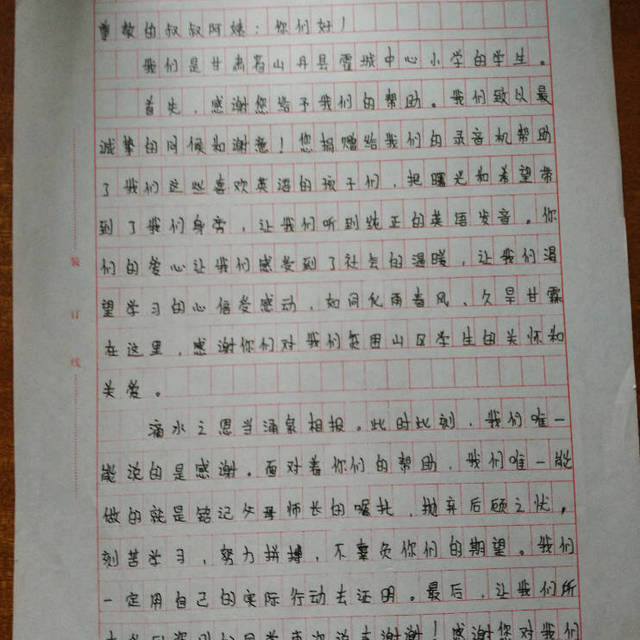 尊敬的叔叔阿姨：你们好！
我们是甘肃省山丹县霍城中心小学的学生。
首先，感谢您给予我们的帮助。我们致以最
诚挚的问候和谢意！您捐赠给我们的录音机帮助
了我们这些喜欢英语的孩子们，把曙光和希望带
到了我们身旁，让我们听到纯正的英语发音。你
们的爱心让我们感受到了社会的温暖，让我们渴
望学习的心倍受感动，如同化雨春风、久旱甘霖
在这里，感谢你们对我们贫困山区学生的关怀和
关爱。
滴水之恩当涌泉相报。此时此刻，我们唯一
能说的是感谢。面对着你们的帮助，我们唯一能
做的就是铭记父母师长的嘱托，抛弃后顾之忧，
刻苦学习，努力拼搏，不辜负你们的期望。我们
一定用自己的实际行动去证明。最后，让我们所
谢谢！感谢您对我们
装
订
线